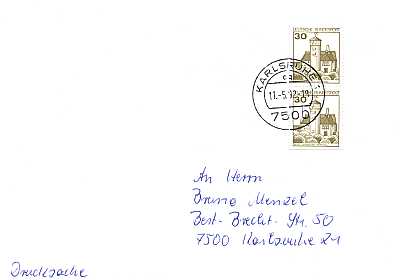 30
DEUTSCHE BUNDESPOST
KARLSRUHE 1
11.-5.82-19
7500
30
An Herrn
Bruno Menzel
Bert-Brecht-Str. 50
7500 Karlsruhe 21
Drucksache